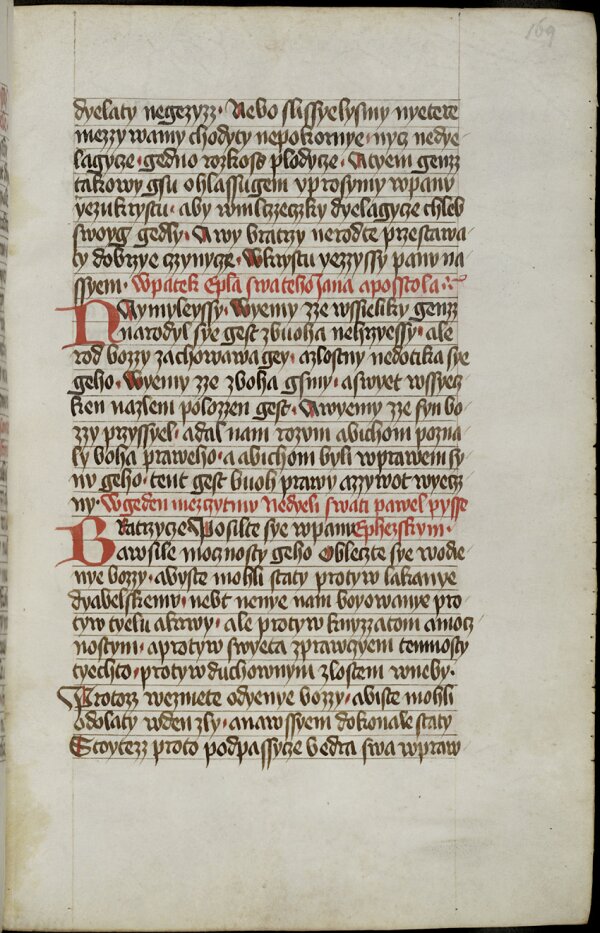 169
dyelaty negezyzz · Nebo slissyelysmy nyetere
mezzy wamy chodyty nepokornye · nycz nedye
lagycze · gedno rozkoss plodycze · Atyem genzz
takowy gsu ohlassugem vprosymy wpanu
yezukrystu · aby wmlczeczky dyelagycze chleb
swoyg gedly · A wy bratrzy nerodte przestawa
ty dobrzye czynycze · Wkrystu yezzyssy panu na
ssyem · Wpatek Epla swateho Jana aposstola
Naymyleyssy · Wyemy zze wssieliky genzz
narodyl sye gest zbuoha nehrzyessy · ale
rod bozzy zachowawa gey · azlostny nedotika sye
geho · Wyemy zze zboha gsmy · aswyet wssyecz
ken nazlem polozzen gest · Awyemy zze syn bo
zzy przyssyel · adal nam rozum abichom pozna
ly boha praweho · a abichom byli wprawem sy
nu geho · tent gest buoh prawy azzywot wyecz
ny · Wgeden mezcytmu Nedyeli swati pawel pysse
Bratrzycze Posilte sye wpanu Ephezskym ·
awsile mocznosty geho Obleczte sye wodie
nye bozzy · abyste mohli staty protyw lakanye
dyabelskemu · nebt nenye nam boyowanye pro
tyw tyelu akrwy · ale protyw knyzzatom amocz
nostym · aprotyw swyeta zprawczyem temnosty
tyechto · protyw duchownym zlostem wneby ·
Protozz wezmete odyenye bozzy · abiste mohli
odolaty wden zly · anawssyem dokonale staty
Stoytezz proto podpassycze bedra swa wpraw